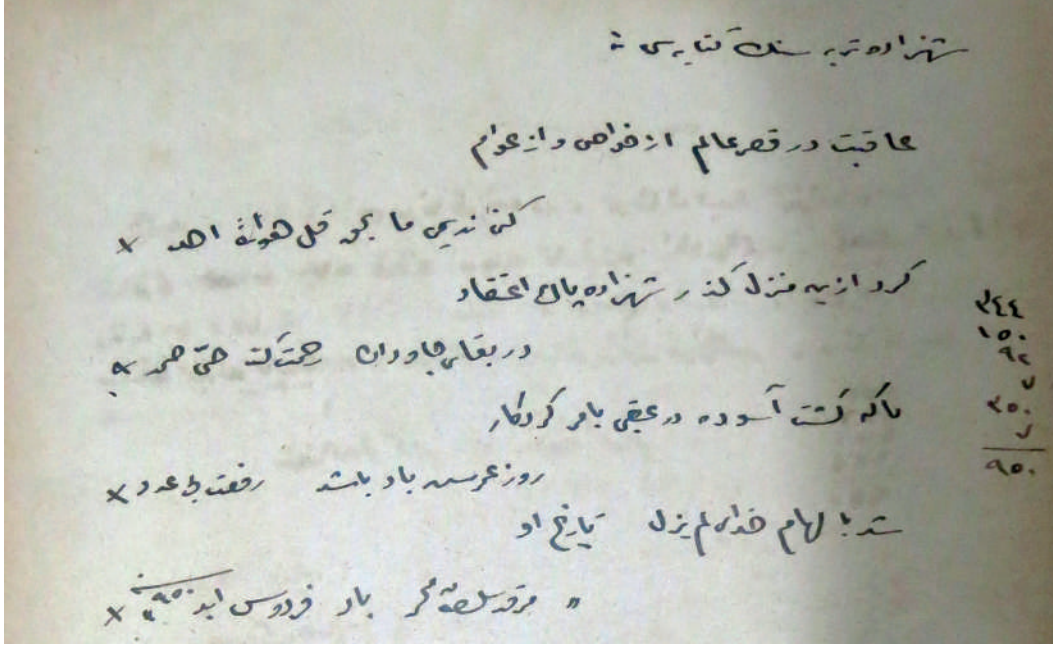 شهزاده تربه سنك كتابه سى :
عاقبت در قصر عالم از خواص و از عوام
ما بجز قل هو الله احد ×
كرد ازين منزل كذر شهزاده پاك اعتقاد
در بقاى جاودان رحمت حى صمد ×
تا كه كشت آسوده در عقبى بامر كردكار
روز باد باشد رفعت بى عدد ×
شد با لهام خداى لم يزل تاريخ او
" مرقد سلطان محمد باد فردوس ابد " ٩٥٠ ×
٣٤٤
١٥٠
٩٢
٧
٣٥٠
٧
٩٥٠